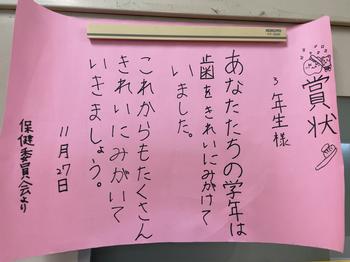 賞状
3年生様
あなたたちの学年は
歯をきれいにみがけて
いました。
これからもたくさん
きれいにみがいて
いきましょう。
11月27日
保健委員会より